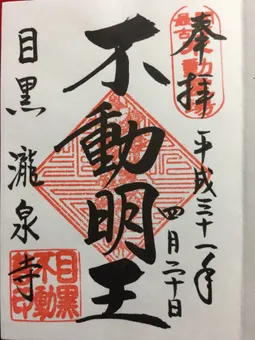 奉拝
平成三十一年
四月二十日
不動明王
目黒瀧泉寺
目黒
不動
印